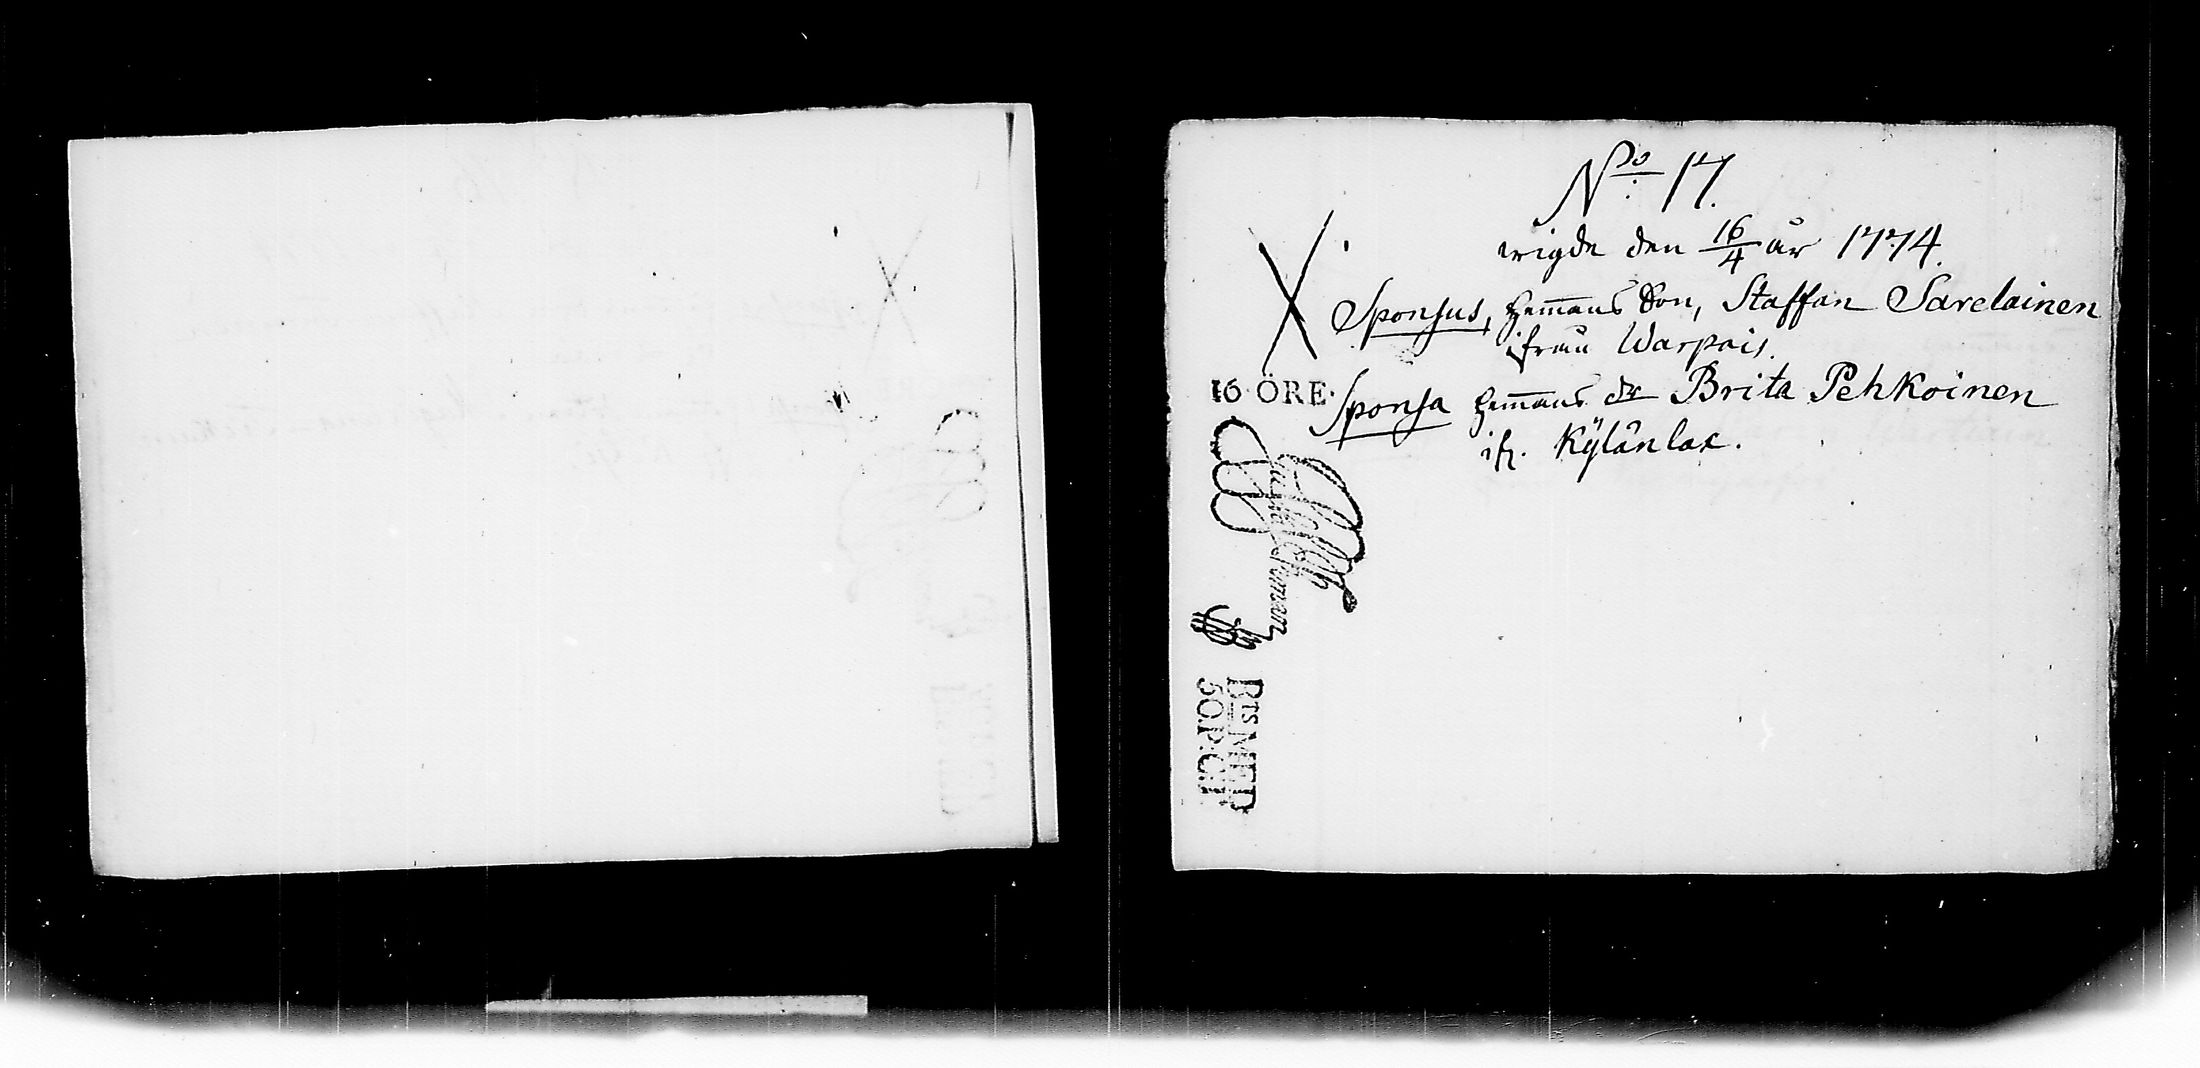 No 17.
wigde den 16/4 år 1774.
Sponsus, Hem̅ans Son, Staffan Sarelainen
ifrån Warpais.
Sponsa Hem̅ans dr Brita Pehkoinen
ifr. Kÿlänlax.
16 ÖRE.
BTS MED
50 P:CT